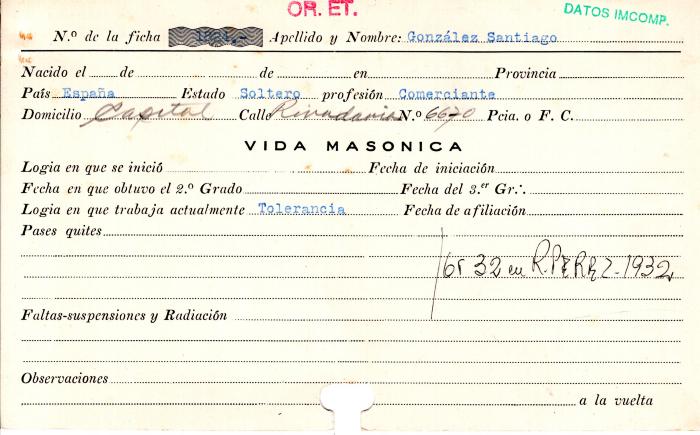 OR. ET.
DATOS IMCOMP.
N.º de la ficha Apellido y Nombre: González Santiago
Nacido el de de en Provincia
País España Estado Soltero profesión Comerciante
Domicilio Capital Calle Rivadavia N.º 6670 Pcia. o F. C.
VIDA MASONICA
Logia en que se inició Fecha de iniciación
Fecha en que obtuvo el 2.º Grado Fecha del 3.er Gr∴
Logia en que trabaja actualmente Tolerancia Fecha de afiliación
Pases quites
Gr 32 en R.PEREZ-1932
Faltas-suspensiones y Radiación
Observaciones
a la vuelta